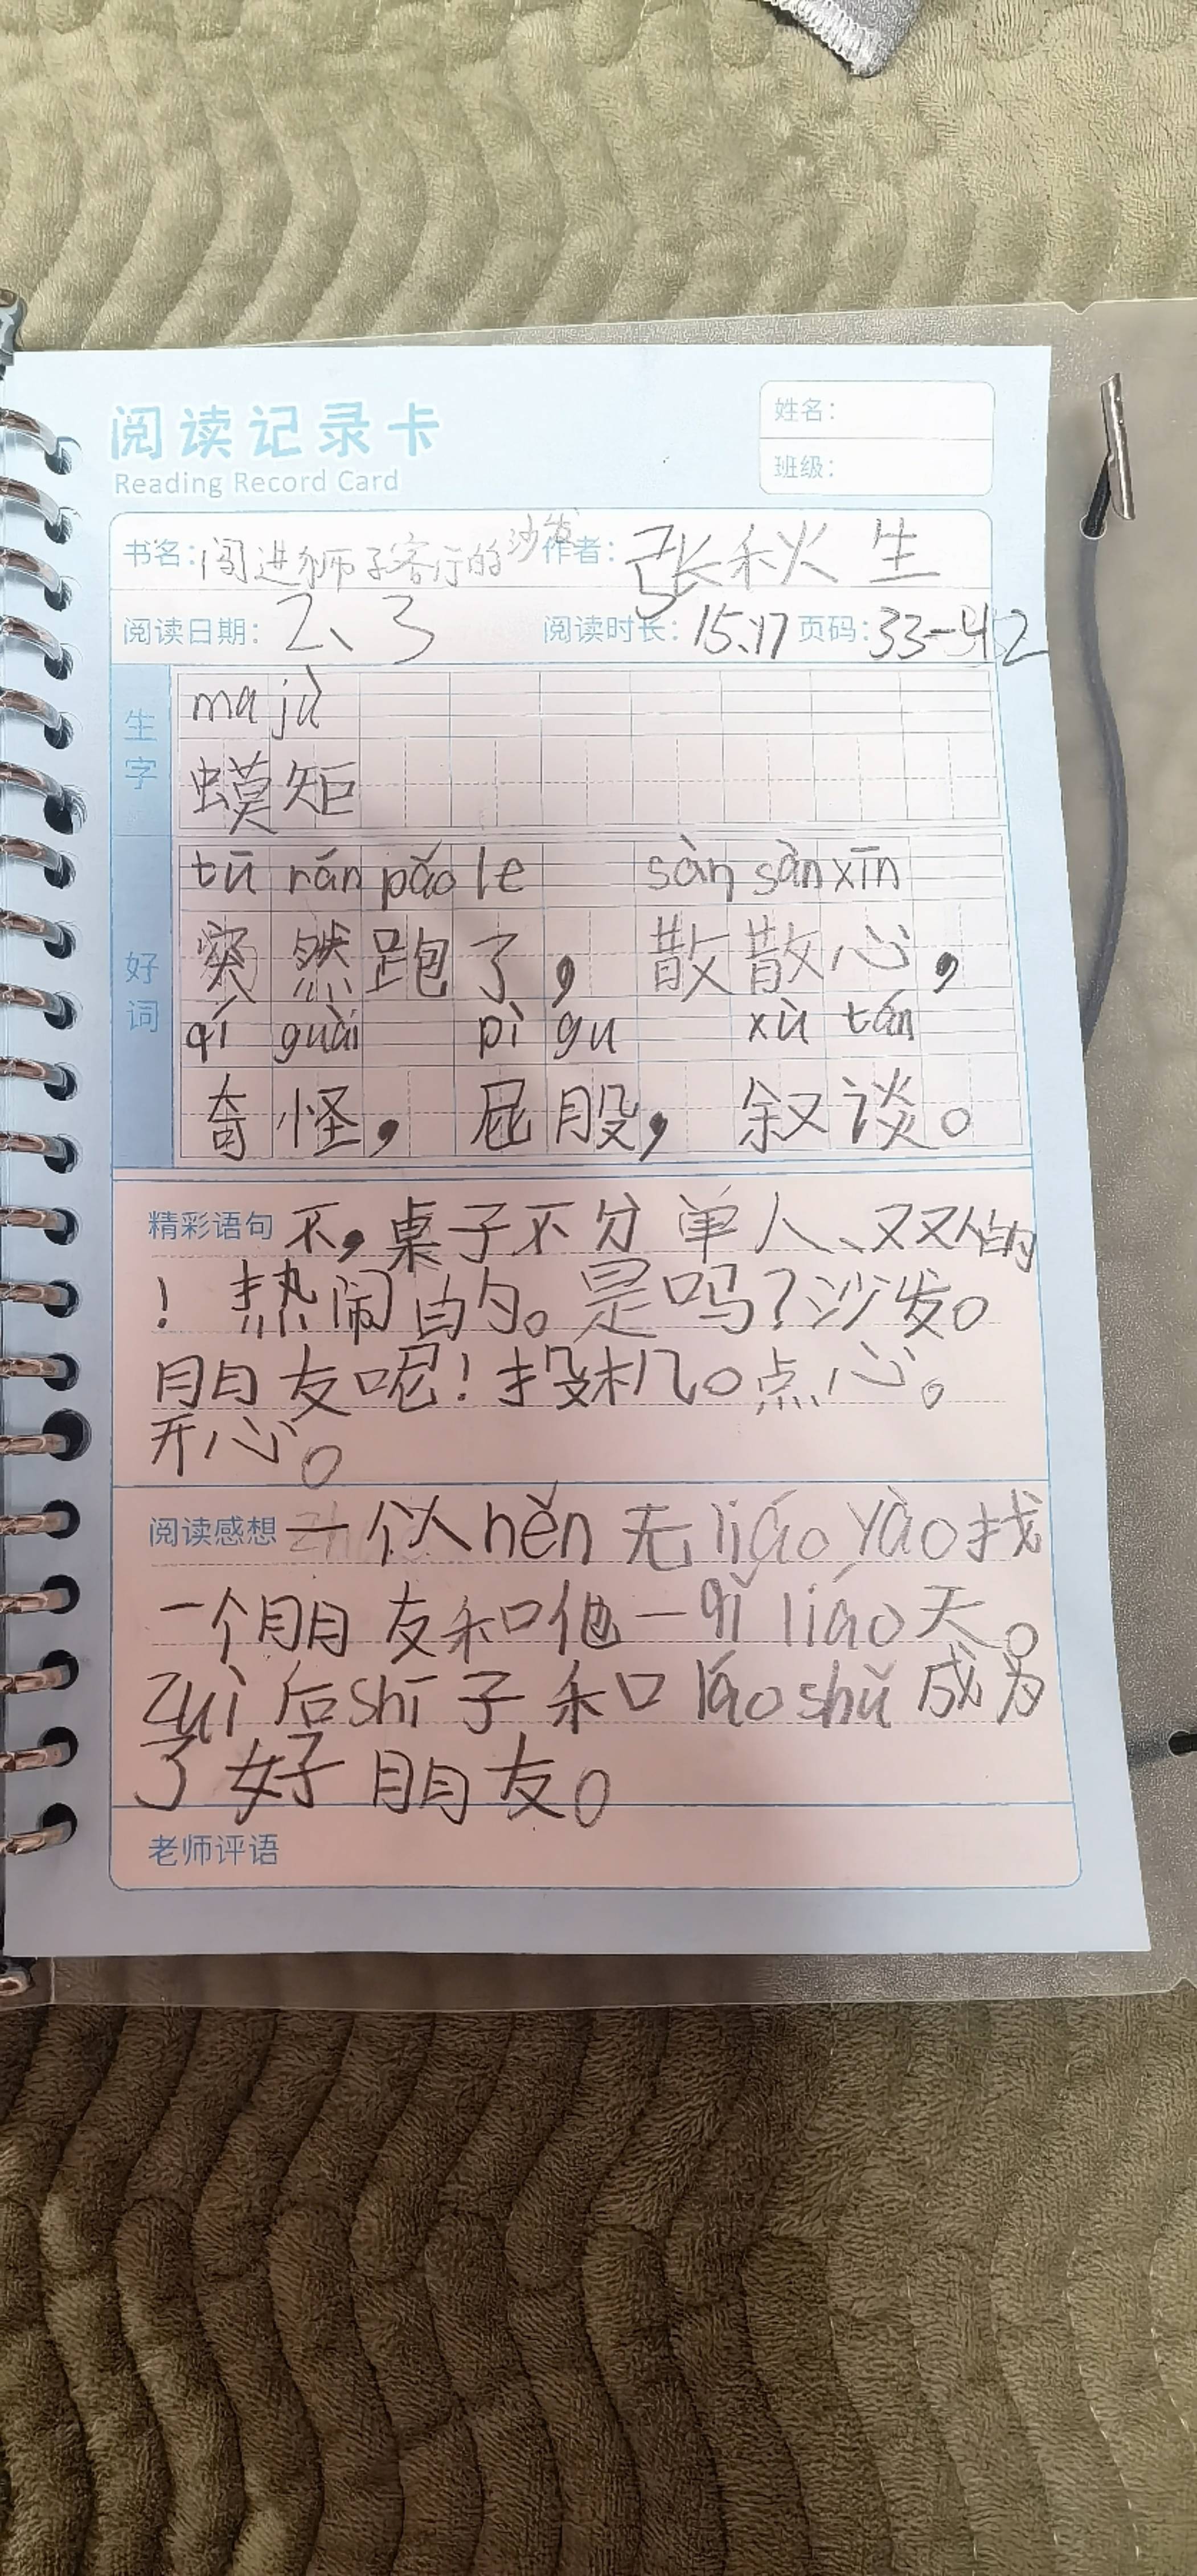 阅读记录卡
Reading Record Card
姓名：
班级：
书名：闯进狮子客厅的沙发 作者：张秋生
阅读日期：2、3 阅读时长：15、17 页码：33-42
生字
ma jù
蟆矩
好词
tū rán pǎo le sàn sàn xīn
突然跑了，散散心，
qí guài pì gu xù tán
奇怪，屁股，叙谈。
精彩语句 不，桌子不分单人、双人的
！热闹的。是吗？沙发。
朋友呢！投机。点心。
开心。
阅读感想 一个人hěn无liáo yào找
一个朋友和他一qǐ liáo天。
zuì后shī子和lǎoshǔ成为
了好朋友。
老师评语